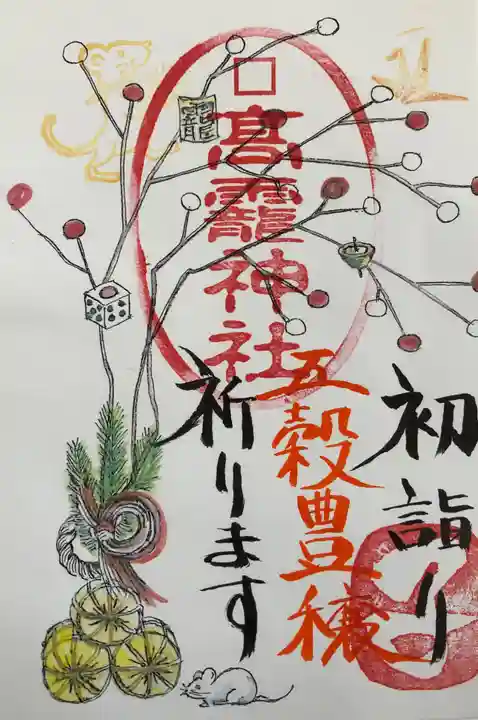 初詣り
五穀豊穣
祈ります
髙龗神社
龍